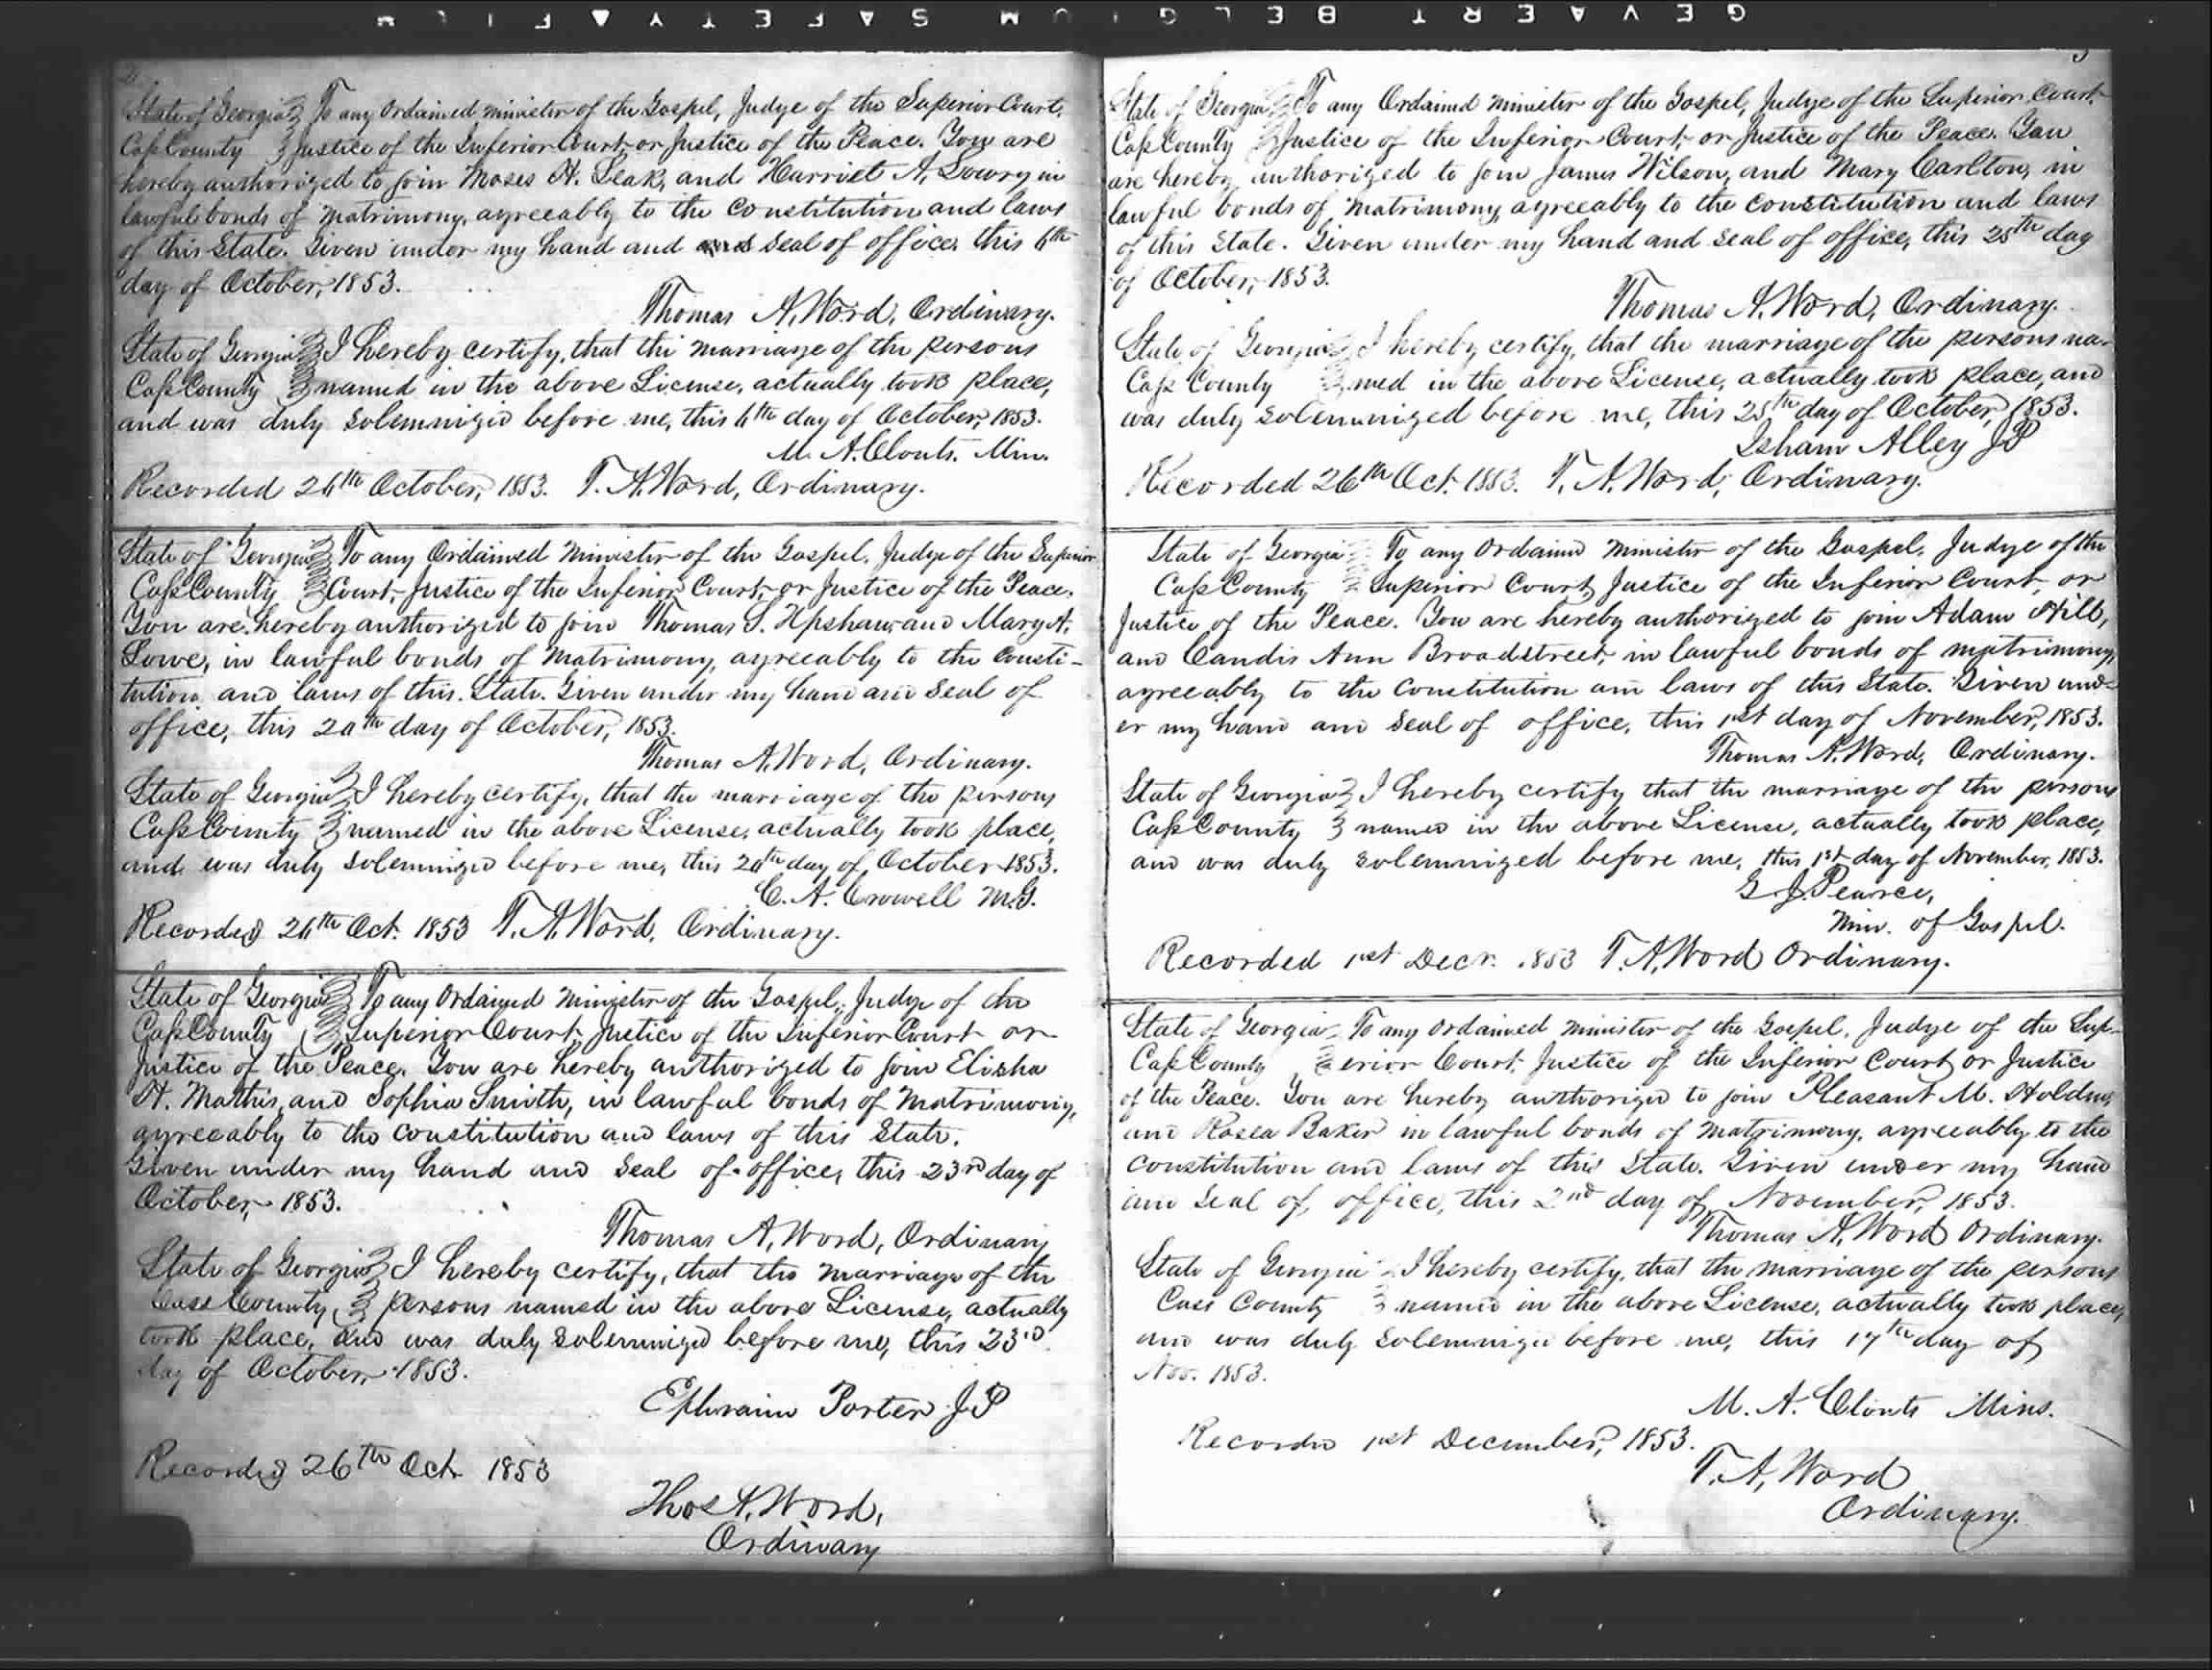 GEVAERT BELGIUM SAFETY FILM
2
State of Georgia } To any Ordained Minister of the Gospel, Judge of the Superior Court,
Cass County } Justice of the Inferior Court, or Justice of the Peace. You are
hereby authorized to join Moses H. Leak, and Harriet A. Lowry in
lawful bonds of matrimony, agreeably to the constitution and laws
of this State. Given under my hand and and seal of office, this 6th
day of October, 1853.
Thomas A. Word, Ordinary.
State of Georgia } I hereby certify, that the marriage of the persons
Cass County } named in the above License, actually took place,
and was duly solemnized before me, this 6th day of October, 1853.
M. A. Clonts. Min.
Recorded 26th October, 1853. T. A. Word, Ordinary.
State of Georgia } To any Ordained Minister of the Gospel, Judge of the Superior
Cass County } Court, Justice of the Inferior Court, or Justice of the Peace.
You are hereby authorized to join Thomas S. Upshaw, and Mary A.
Lowe, in lawful bonds of matrimony, agreeably to the Consti-
tution, and laws of this State. Given under my hand and seal of
office, this 20th day of October, 1853.
Thomas A. Word, Ordinary.
State of Georgia } I hereby certify, that the marriage of the persons
Cass County } named in the above License, actually took place,
and was duly solemnized before me, this 20th day of October 1853.
C. A. Crowell M.G.
Recorded 26th Oct. 1853 T. A. Word, Ordinary.
State of Georgia } To any Ordained Minister of the Gospel, Judge of the
Cass County } Superior Court, Justice of the Inferior Court or
Justice of the Peace. You are hereby authorized to join Elisha
H. Mathis, and Sophia Smith, in lawful bonds of matrimony,
agreeably to the constitution and laws of this State.
Given under my hand and seal of office, this 23rd day of
October, 1853.
Thomas A. Word, Ordinary
State of Georgia } I hereby certify, that the marriage of the
Cass County } persons named in the above License, actually
took place, and was duly solemnized before me, this 23rd
day of October, 1853.
Ephraim Porter J.P
Recorded 26th Oct 1853
Thos A. Word,
Ordinary
3
State of Georgia } To any Ordained Minister of the Gospel, Judge of the Superior Court,
Cass County } Justice of the Inferior Court, or Justice of the Peace. You
are hereby authorized to join James Wilson, and Mary Carlton, in
lawful bonds of matrimony, agreeably to the constitution and laws
of this State. Given under my hand and seal of office, this 25th day
of October, 1853.
Thomas A. Word, Ordinary.
State of Georgia } I hereby certify, that the marriage of the persons na-
Cass County } med in the above License, actually took place, and
was duly solemnized before me, this 25th day of October, 1853.
Isham Alley JP
Recorded 26th Oct. 1853. T. A. Word, Ordinary.
State of Georgia } To any Ordained Minister of the Gospel, Judge of the
Cass County } Superior Court, Justice of the Inferior Court, or
Justice of the Peace. You are hereby authorized to join Adam Hill,
and Candis Ann Broadstreet, in lawful bonds of matrimony,
agreeably to the constitution and laws of this State. Given und-
er my hand and seal of office, this 1st day of November, 1853.
Thomas A. Word, Ordinary.
State of Georgia } I hereby certify that the marriage of the persons
Cass County } named in the above License, actually took place,
and was duly solemnized before me, this 1st day of November, 1853.
G. J. Pearce,
Min. of Gospel.
Recorded 1st Decr. 1853 T. A. Word Ordinary.
State of Georgia } To any Ordained Minister of the Gospel, Judge of the Sup-
Cass County } erior Court, Justice of the Inferior Court or Justice
of the Peace. You are hereby authorized to join Pleasant M. Holden,
and Rosea Baker in lawful bonds of matrimony, agreeably to the
constitution and laws of this State. Given under my hand
and seal of office, this 2nd day of November, 1853.
Thomas A. Word Ordinary.
State of Georgia } I hereby certify, that the marriage of the persons
Cass County } named in the above License, actually took place,
and was duly solemnized before me, this 17th day of
Nov. 1853.
M. A. Clonts Mins.
Recorded 1st December, 1853.
T. A. Word
Ordinary.